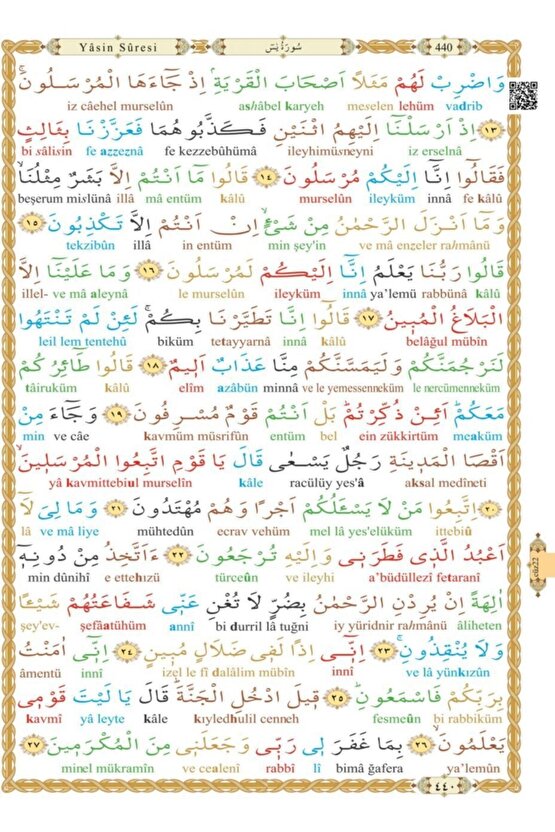 Yâsin Sûresi
سُورَةُ يٰسٓ
440
وَاضْرِبْ لَهُمْ مَثَلاً اَصْحَابَ الْقَرْيَةِۘ اِذْ جَٓاءَهَا الْمُرْسَلُونَۚ
vadrib lehüm meselen ashâbel karyeh iz câehel murselûn
﴿١٣﴾ اِذْ اَرْسَلْنَٓا اِلَيْهِمُ اثْنَيْنِ فَكَذَّبُوهُمَا فَعَزَّزْنَا بِثَالِثٍ
iz erselnâ ileyhimüsneyni fe kezzebûhümâ fe azzeznâ bi sâlisin
فَقَالُٓوا اِنَّٓا اِلَيْكُمْ مُرْسَلُونَ ﴿١٤﴾ قَالُوا مَٓا اَنْتُمْ اِلَّا بَشَرٌ مِثْلُنَاۙ
fe kâlû innâ ileyküm murselûn kâlû mâ entüm illâ beşerum mislünâ
وَمَٓا اَنْزَلَ الرَّحْمٰنُ مِنْ شَيْءٍۙ اِنْ اَنْتُمْ اِلَّا تَكْذِبُونَ ﴿١٥﴾
ve mâ enzeler rahmânü min şey'in in entüm illâ tekzibûn
قَالُوا رَبُّنَا يَعْلَمُ اِنَّٓا اِلَيْكُمْ لَمُرْسَلُونَ ﴿١٦﴾ وَمَا عَلَيْنَٓا اِلَّا
kâlû rabbünâ ya'lemü innâ ileyküm le murselûn ve mâ aleynâ illel-
الْبَلَاغُ الْمُبِينُ ﴿١٧﴾ قَالُٓوا اِنَّا تَطَيَّرْنَا بِكُمْۚ لَئِنْ لَمْ تَنْتَهُوا
belâğul mübîn kâlû innâ tetayyarnâ biküm leil lem tentehû
لَنَرْجُمَنَّكُمْ وَلَيَمَسَّنَّكُمْ مِنَّا عَذَابٌ اَلِيمٌ ﴿١٨﴾ قَالُوا طَٓائِرُكُمْ
le nercümenneküm ve le yemessenneküm minnâ azâbün elîm kâlû tâiruküm
مَعَكُمْۜ اَئِنْ ذُكِّرْتُمْۜ بَلْ اَنْتُمْ قَوْمٌ مُسْرِفُونَ ﴿١٩﴾ وَجَٓاءَ مِنْ
meaküm ein zükkirtüm bel entüm kavmüm müsrifûn ve câe min
اَقْصَا الْمَدِينَةِ رَجُلٌ يَسْعٰى قَالَ يَا قَوْمِ اتَّبِعُوا الْمُرْسَلِينَۙ
aksal medîneti racülüy yes'â kâle yâ kavmittebiul murselîn
﴿٢٠﴾ اِتَّبِعُوا مَنْ لَا يَسْـَٔلُكُمْ اَجْرًا وَهُمْ مُهْتَدُونَ ﴿٢١﴾ وَمَا لِيَ لَٓا
ittebiû mel lâ yes'elüküm ecrav vehüm mühtedûn ve mâ liye lâ
اَعْبُدُ الَّذِي فَطَرَنِي وَاِلَيْهِ تُرْجَعُونَ ﴿٢٢﴾ ءَاَتَّخِذُ مِنْ دُونِهٓ
a'büdüllezî fetaranî ve ileyhi türceûn e ettehızü min dûnihî
اٰلِهَةً اِنْ يُرِدْنِ الرَّحْمٰنُ بِضُرٍّ لَا تُغْنِ عَنِّي شَفَاعَتُهُمْ شَيْـًٔا
âliheten iy yüridnir rahmânü bi durril lâ tuğni annî şefâatühüm şey'ev-
وَلَا يُنْقِذُونِۚ ﴿٢٣﴾ اِنِّٓي اِذًا لَفِي ضَلَالٍ مُبِينٍ ﴿٢٤﴾ اِنِّٓي اٰمَنْتُ
ve lâ yünkızûn innî izel le fî dalâlim mübîn innî âmentü
بِرَبِّكُمْ فَاسْمَعُونِۜ ﴿٢٥﴾ قِيلَ ادْخُلِ الْجَنَّةَۜ قَالَ يَا لَيْتَ قَوْمِي
bi rabbiküm fesmeûn kıyledhulil cenneh kâle yâ leyte kavmî
يَعْلَمُونَۙ ﴿٢٦﴾ بِمَا غَفَرَ لِي رَبِّي وَجَعَلَنِي مِنَ الْمُكْرَمِينَ ﴿٢٧﴾
ya'lemûn bimâ ğafera lî rabbî ve cealenî minel mükramîn
cüz22
٤٤٠